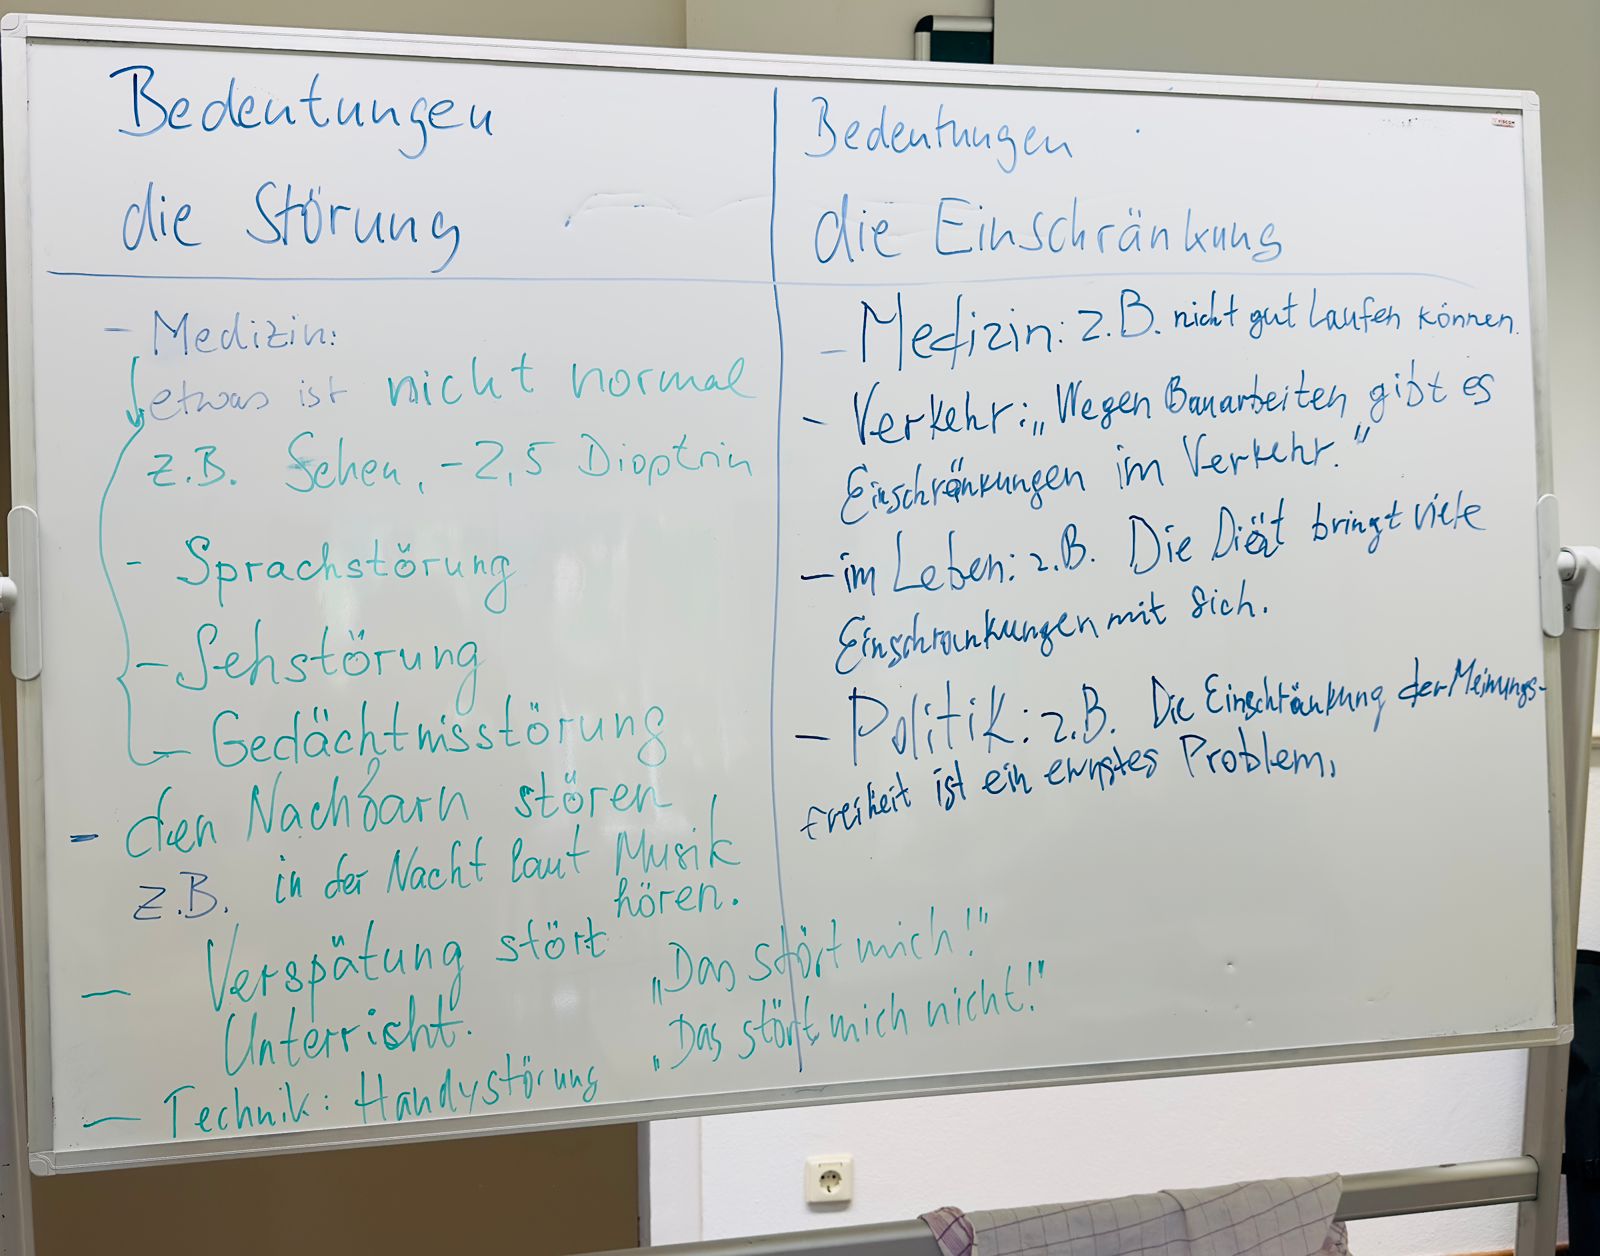 Bedeutungen
die Störung
- Medizin:
etwas ist nicht normal
z.B. Sehen, -2,5 Dioptrin
- Sprachstörung
- Sehstörung
- Gedächtnisstörung
- den Nachbarn stören
z.B. in der Nacht laut Musik
hören.
- Verspätung stört
Unterricht.
- Technik: Handystörung
„Das stört mich!"
„Das stört mich nicht!"
Bedeutungen
die Einschränkung
- Medizin: z.B. nicht gut laufen können.
- Verkehr: „Wegen Bauarbeiten gibt es
Einschränkungen im Verkehr."
- im Leben: z.B. Die Diät bringt viele
Einschrankungen mit sich.
- Politik: z.B. Die Einschränkung der Meinungs-
freiheit ist ein ernstes Problem.
VISCOM